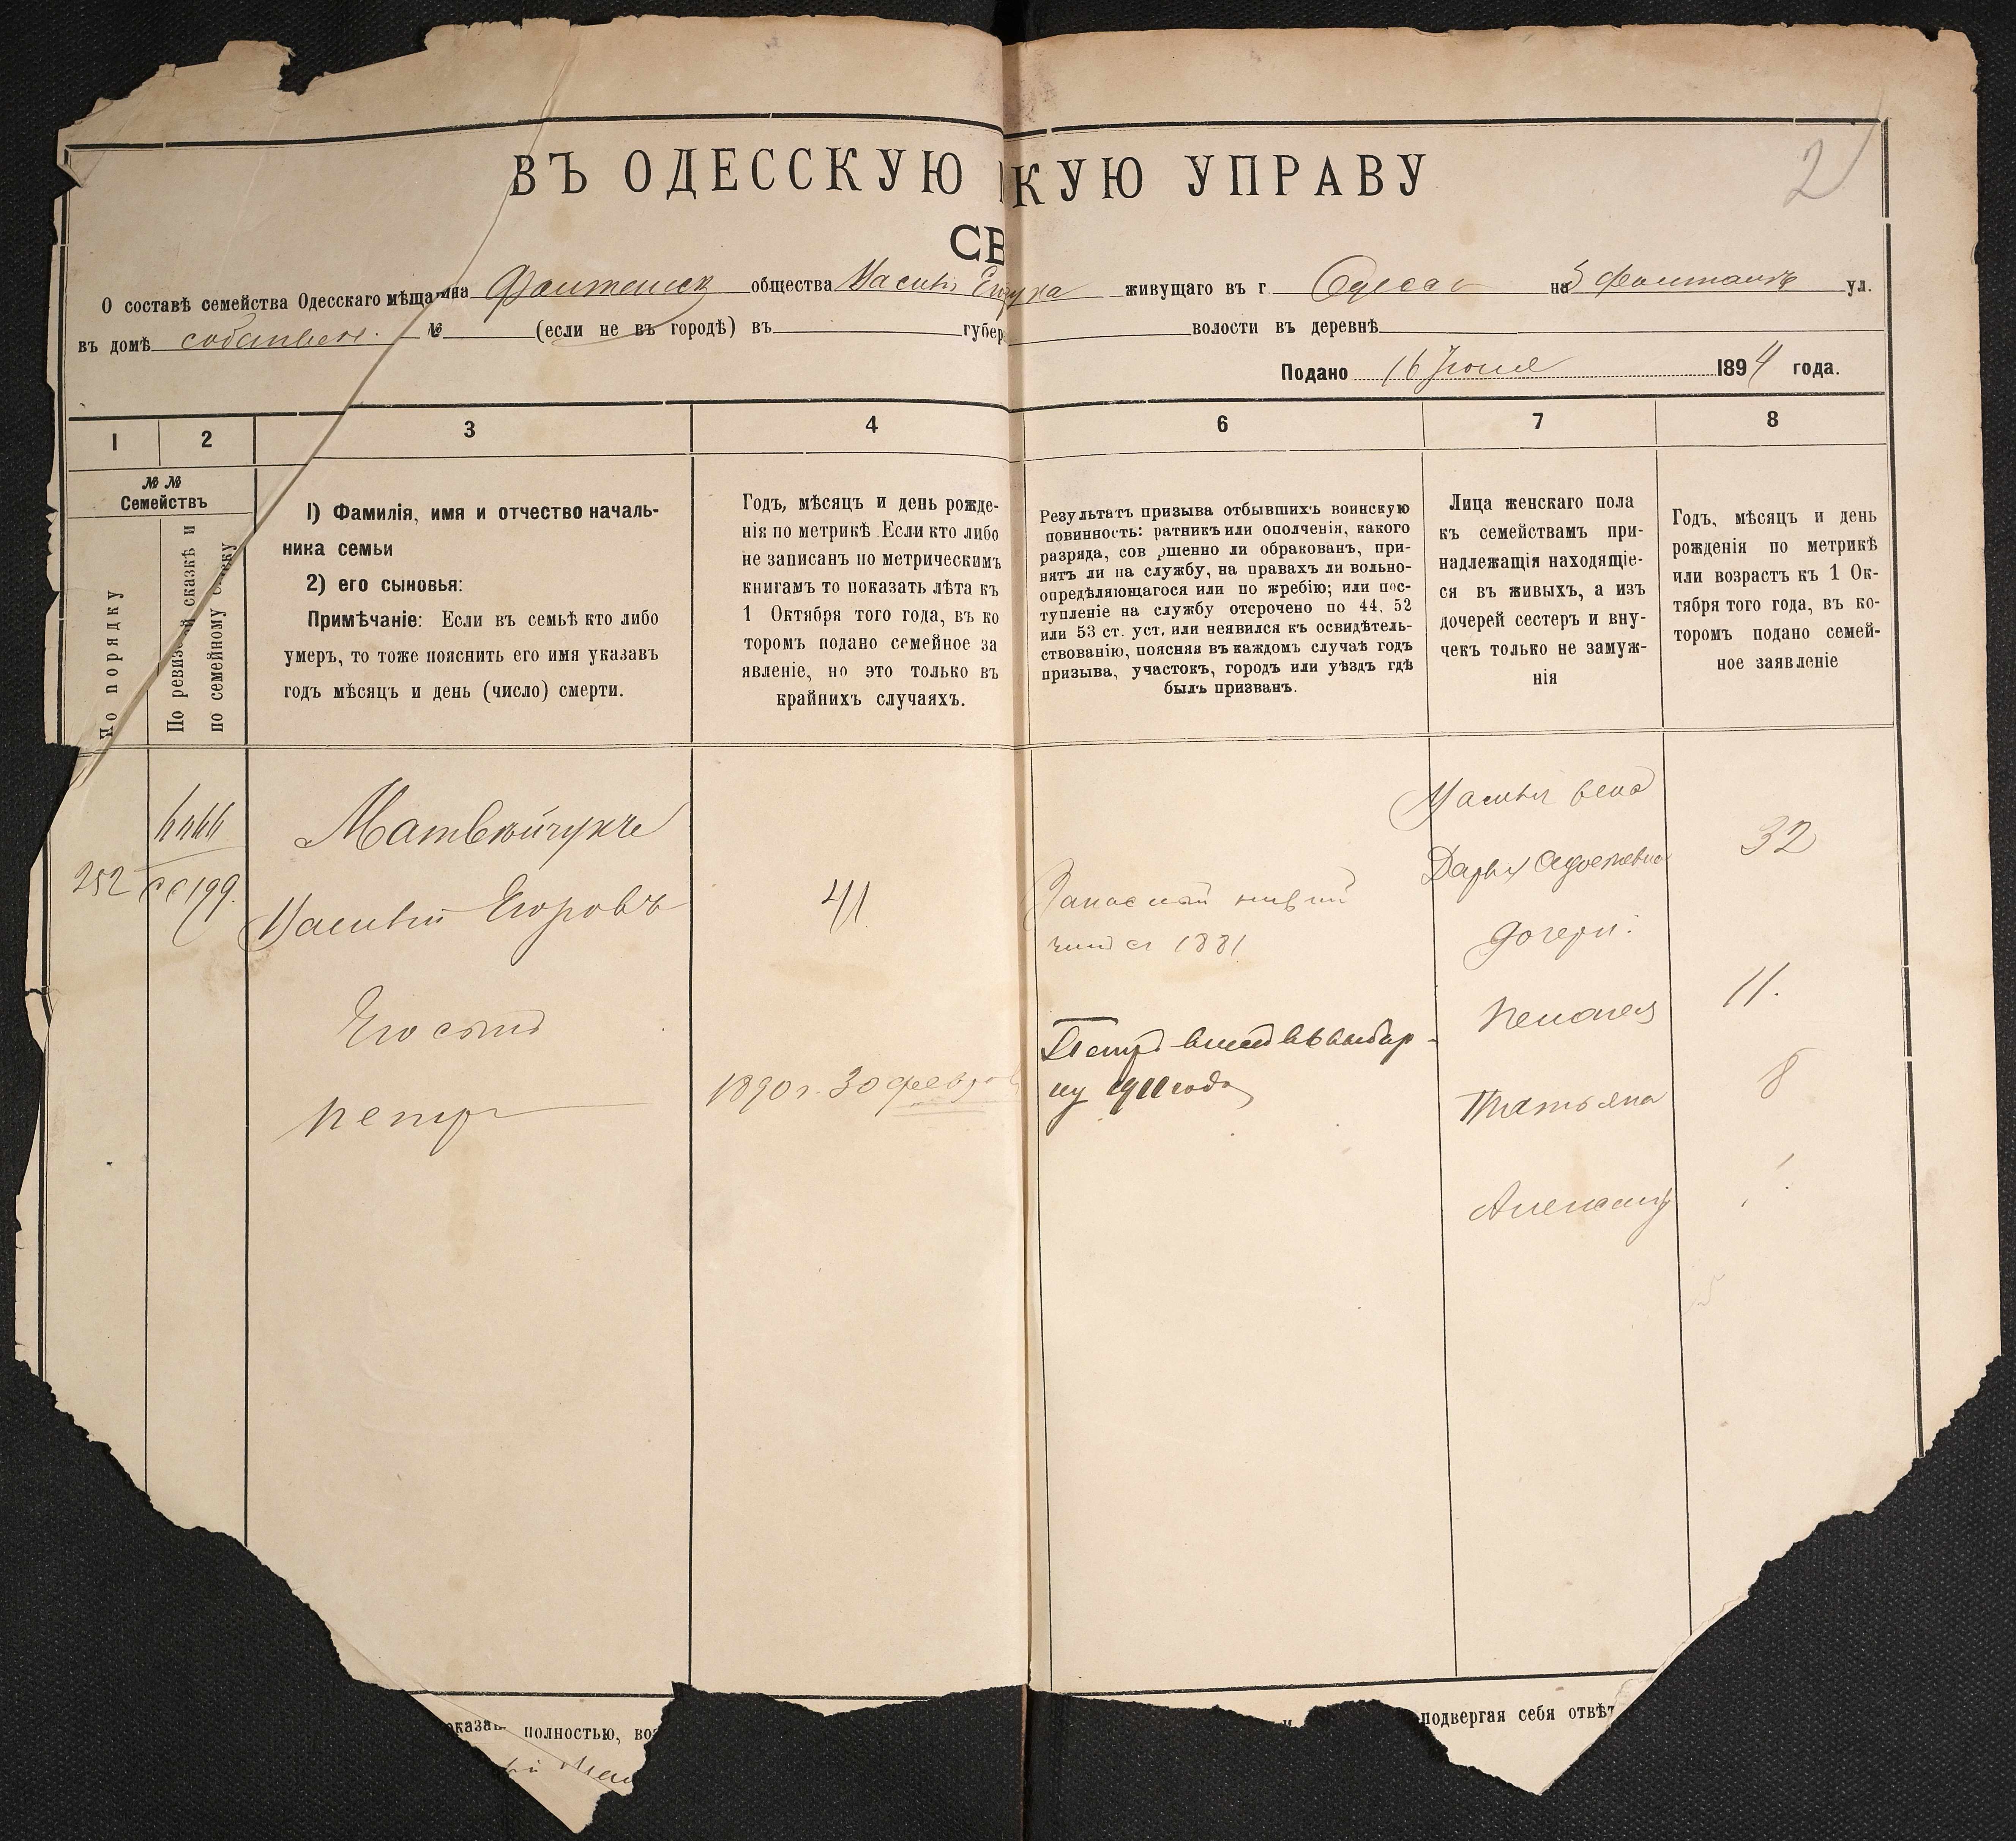 2
ВЪ ОДЕССКУЮ КУЮ УПРАВУ
СВ
О составѣ семейства Одесскаго мѣщанина Фонтанск общества живущаго въ г. Одессѣ на 5 Фонтанѣ ул.
въ домѣ собствен. № (если не въ городѣ) въ губер волости въ деревнѣ
Подано 16 Июня 1894 года.
1 2 3 4 6 7 8
№ №
Семействъ
По порядку
По ревизской сказкѣ и
по семейному списку
1) Фамилія, имя и отчество началь-
ника семьи
2) его сыновья:
Примѣчаніе: Если въ семьѣ кто либо
умеръ, то тоже пояснить его имя указавъ
годъ мѣсяцъ и день (число) смерти.
Годъ, мѣсяцъ и день рожде-
нія по метрикѣ. Если кто либо
не записанъ по метрическимъ
книгамъ то показать лѣта къ
1 Октября того года, въ ко
торомъ подано семейное за
явленіе, но это только въ
крайнихъ случаяхъ.
Результатъ призыва отбывшихъ воинскую
повинность: ратникъ или ополченія, какого
разряда, сов ршенно ли обракованъ, при-
нятъ ли на службу, на правахъ ли вольно-
опредѣляющагося или по жребію; или пос-
тупленіе на службу отсрочено по 44, 52
или 53 ст. уст. или неявился къ освидѣтель-
ствованію, поясняя въ каждомъ случаѣ годъ
призыва, участокъ, городъ или уѣздъ гдѣ
былъ призванъ.
Лица женскаго пола
къ семействамъ при-
надлежащія находящіе-
ся въ живыхъ, а изъ
дочерей сестеръ и вну-
чекъ только не замуж-
нія
Годъ, мѣсяцъ и день
рожденія по метрикѣ
или возрастъ къ 1 Ок-
тября того года, въ ко-
торомъ подано семей-
ное заявленіе
252
199.
Матвейчукъ
Василій Егоровъ
41
Запасный нижній
чинъ съ 1881
Его сынъ
Петръ
1890 г. 30 февраля
Петръ внесенъ въ выбор-
ку 1911 года
Василія жена
Дарья
32
дочери:
Пелагея
11.
Татьяна
8
Александр
оказан полностью, воз
подвергая себя отвѣт